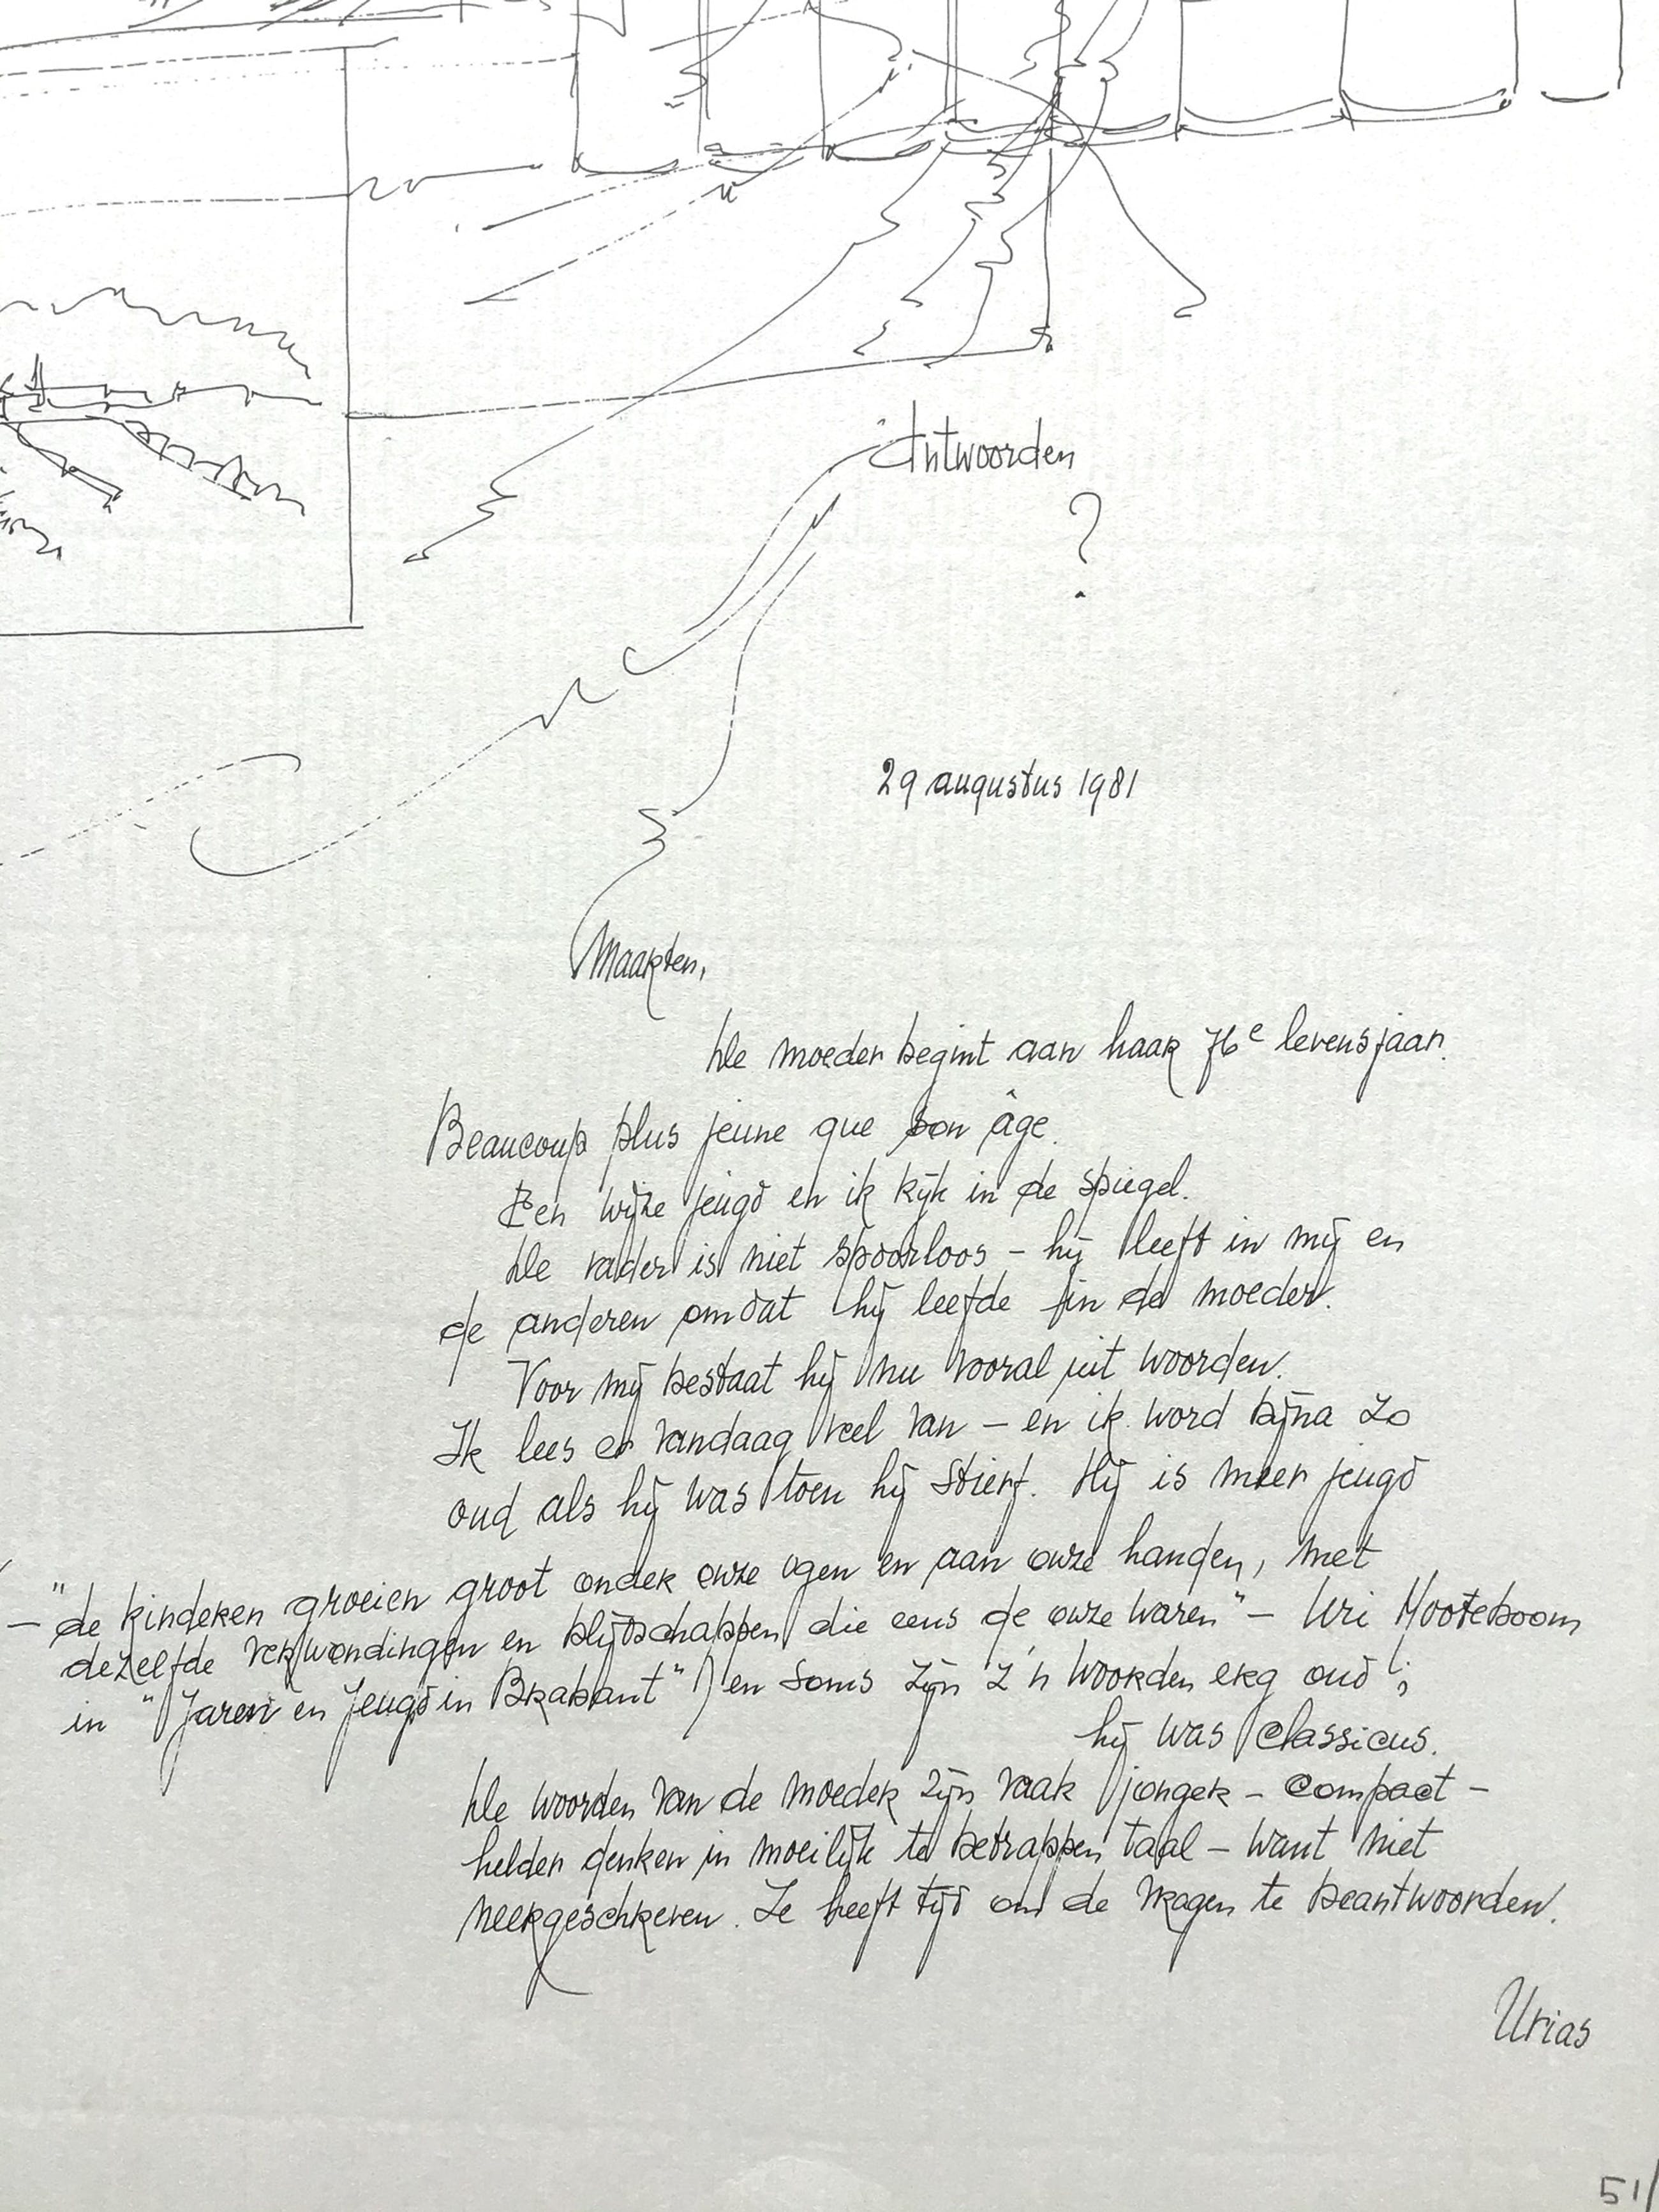 Antwoorden
?
29 augustus 1981
Maarten,
De moeder begint aan haar 76e levensjaar.
Beaucoup plus jeune que son âge.
Een wijze jeugd en ik kijk in de spiegel.
De vader is niet spoorloos – hij leeft in mij en
de anderen omdat hij leefde in de moeder.
Voor mij bestaat hij nu vooral uit woorden.
Ik lees er vandaag veel van – en ik word bijna zo
oud als hij was toen hij stierf. Hij is meer jeugd
– "de kinderen groeien groot onder onze ogen en aan onze handen, met
dezelfde verwondingen en blijdschappen die eens de onze waren" – Uri Nooteboom
in "Jaren en Jeugd in Brabant" ) en soms zijn z'n woorden erg oud ;
hij was classicus.
De woorden van de moeder zijn vaak jonger – compact –
helder denken in moeilijk te betrappen taal – want niet
neergeschreven. Ze heeft tijd om de vragen te beantwoorden.
Urias
51/